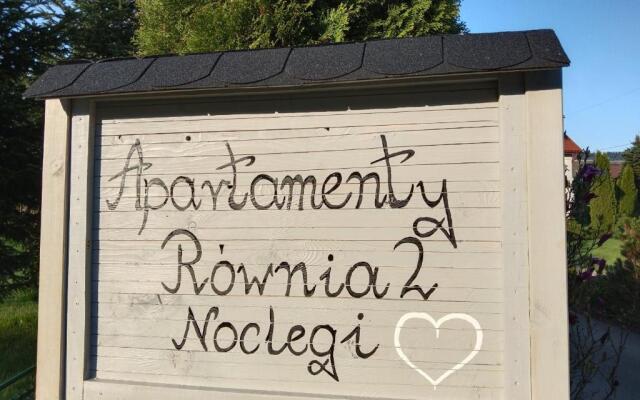 Apartamenty
Równia 2
Noclegi